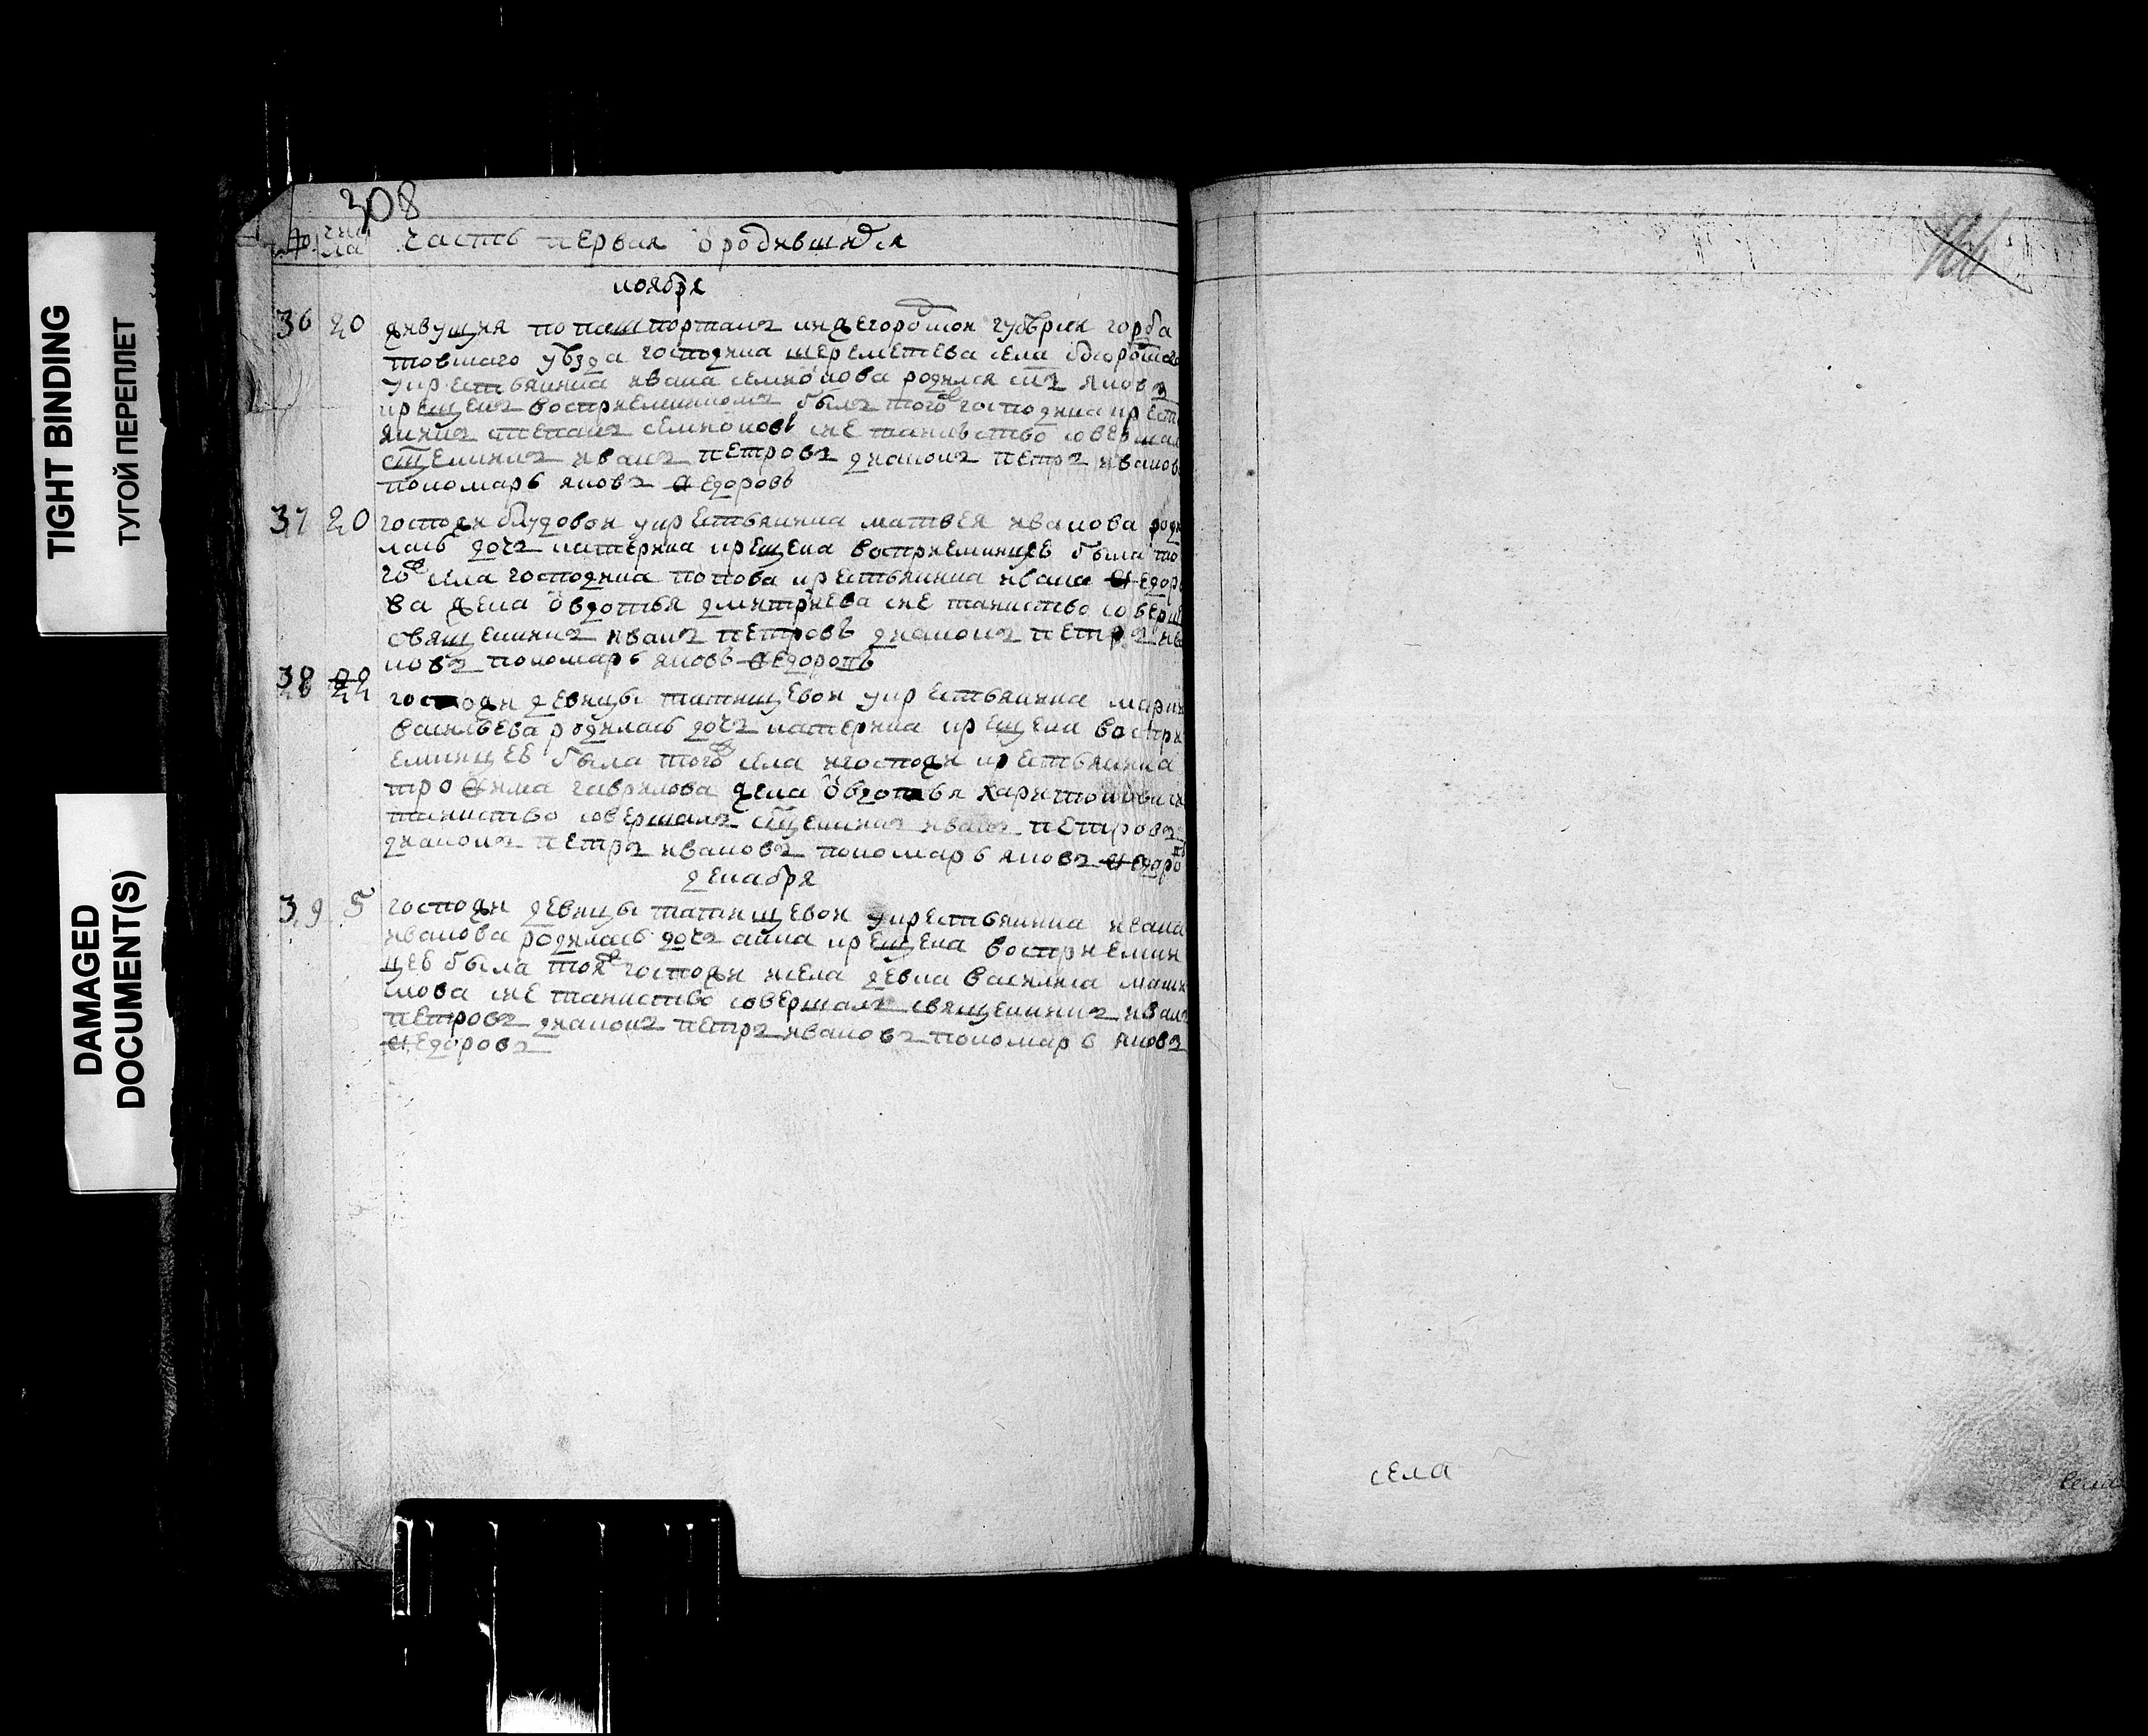 TIGHT BINDING
ТУГОЙ ПЕРЕПЛЕТ
DAMAGED
DOCUMENT(S)
308
№ числа часть первая о родившихся
ноября
36 20 живущия по пашпортам нижегородской губернии горба
товскаго уезда господина шереметева села
у крестьянина ивана семионова родился снъ яковъ
крещенъ восприемникомъ былъ того ж господина крест
янинъ степанъ семионовъ сие таинство совершал
сщенникъ иванъ петровъ диаконъ петръ иванов
пономарь яковъ Ѳедоровъ
37 20 госпожи блудовой у крестьянина матвея иванова роди
лась дочь катерина крещена восприемницей была то
го ж села господина попова крестьянина ивана Ѳедоро
ва жена овдотья дмитриева сие таинство соверш
священникъ иванъ петровъ диаконъ петръ ива
новъ пономарь яковъ Ѳедоровъ
38 22 госпожи девицы татищевой у крестьянина
васильева родилась дочь катерина крещена воспри
емницей была того ж села и госпожи крестьянина
троѲима гаврилова жена овдотья харитонова сие
таинство совершалъ сщенникъ иванъ петровъ
диаконъ петръ ивановъ пономарь яковъ Ѳедоровъ
декабря
39 5 госпожи девицы татищевой у крестьянина ивана
иванова родилась дочь анна крещена восприемни
цей была тоя ж госпожи и села девка василиса макси
мова сие таинство совершалъ священникъ иванъ
петровъ диаконъ петръ ивановъ пономарь яковъ
Ѳедоровъ
166
села
села